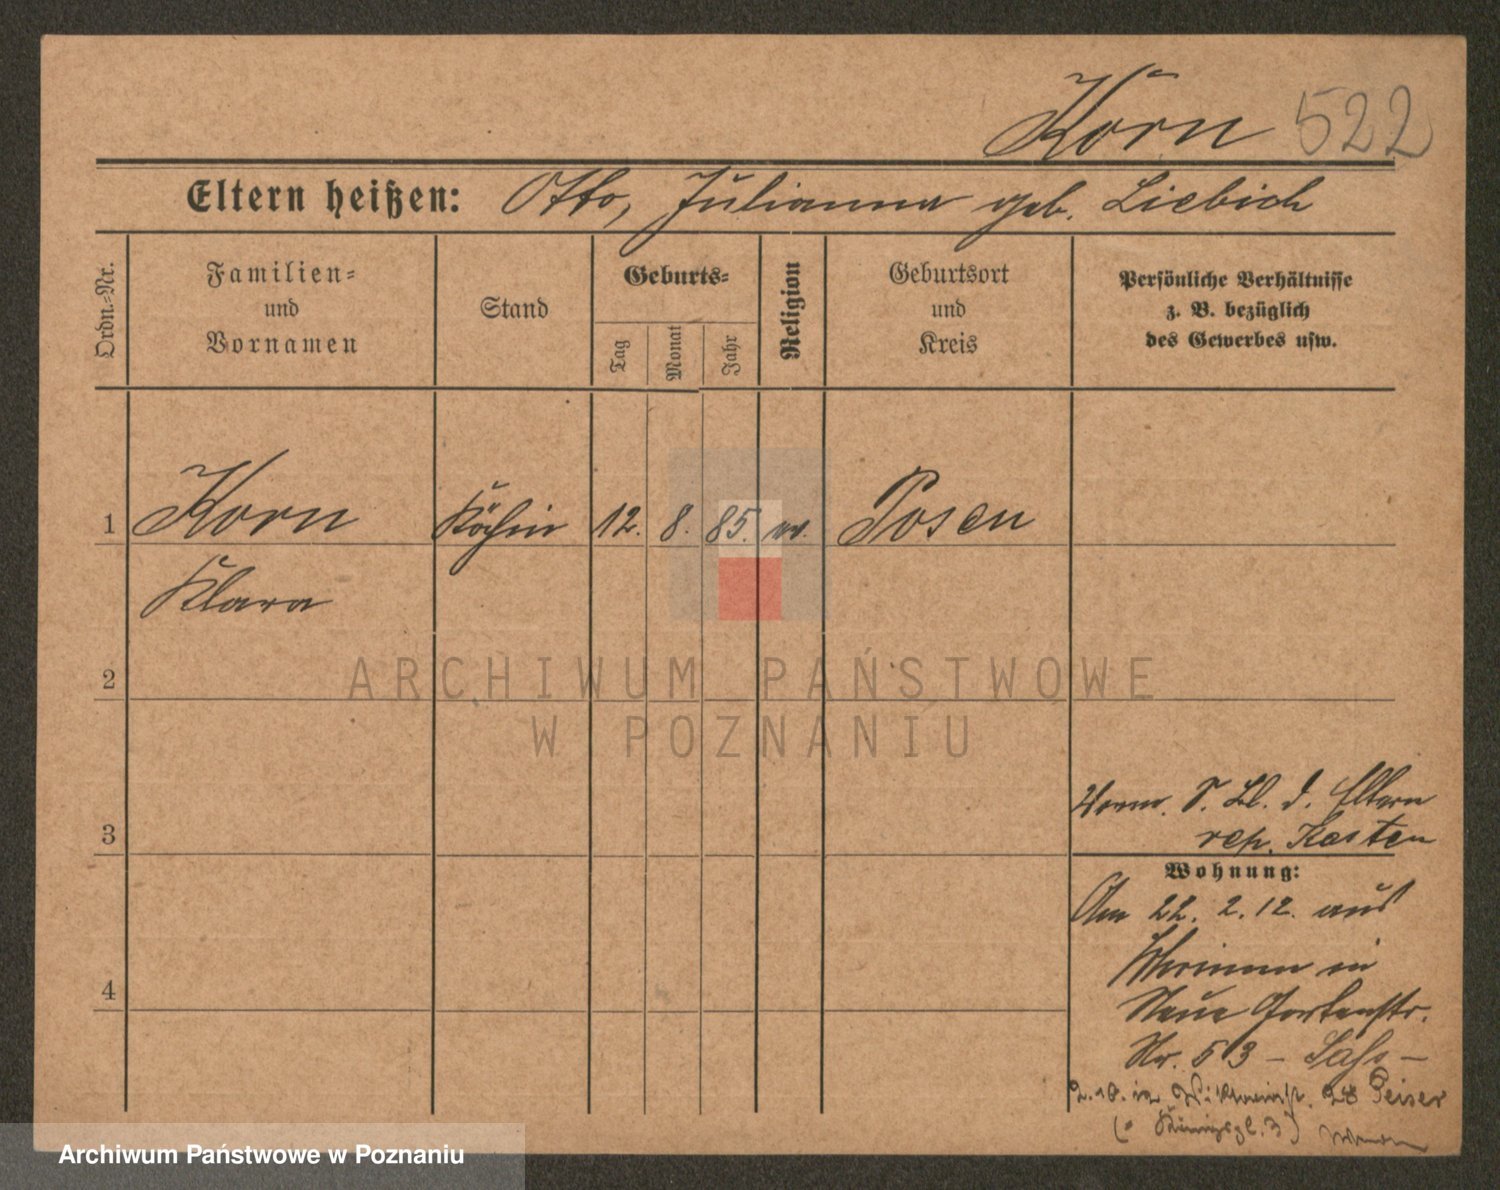 Korn 522
Eltern heißen: Otto, Julianna geb. Liebich
Ordn.=Nr.
Familien=
und
Vornamen
Stand
Geburts=
Tag
Monat
Jahr
Religion
Geburtsort
und
Kreis
Persönliche Verhältnisse
z. B. bezüglich
des Gewerbes usw.
1 Korn Köchin 12. 8. 85. ev. Posen
Klara
2
3
4
Vorm. S. Bl. d. Eltern
rep. Kasten
Wohnung:
Am 22. 2. 12. aus
in
Neue Gartenstr.
Nr. 53 – Saß –
2.10. in 28 Peiser
(o Königspl. 3)
ARCHIWUM PAŃSTWOWE
W POZNANIU
Archiwum Państwowe w Poznaniu